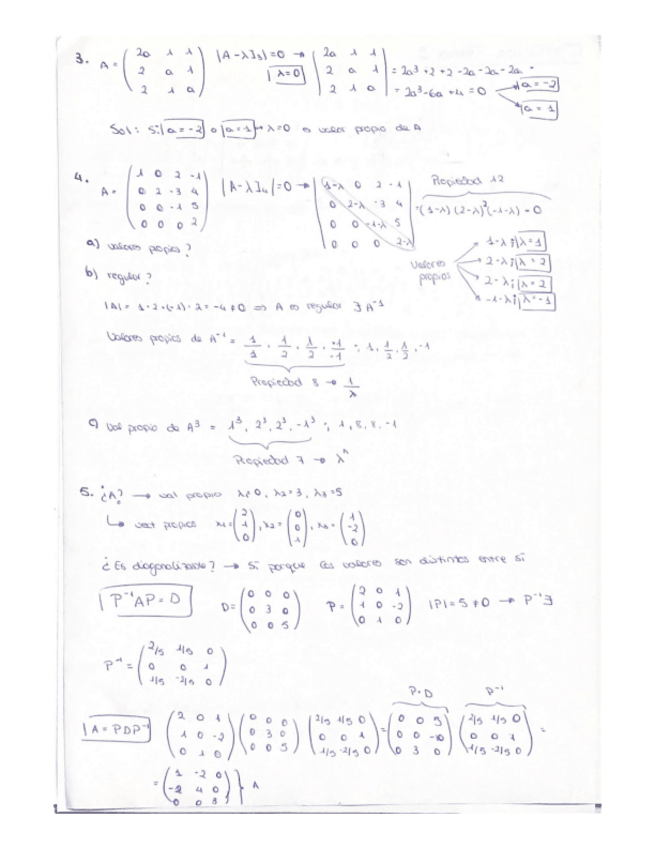 3. A = ( 2a 1 1 / 2 a 1 / 2 1 a ) |A - λI₃| = 0 → | 2a 1 1 / 2 a 1 / 2 1 a | = 2a³ + 2 + 2 - 2a - 2a - 2a =
λ=0 = 2a³ - 6a + 4 = 0 a = -2
a = 1
Sol: Si a = -2 o a = 1 → λ=0 es valor propio de A
4. A = ( 1 0 2 -1 / 0 2 -3 4 / 0 0 -1 5 / 0 0 0 2 ) |A - λI₄| = 0 → | 1-λ 0 2 -1 / 0 2-λ -3 4 / 0 0 -1-λ 5 / 0 0 0 2-λ | = (1-λ)(2-λ)²(-1-λ) = 0
Propiedad 12
a) valores propios?
Valores propios
1-λ; λ=1
2-λ; λ=2
2-λ; λ=2
-1-λ; λ=-1
b) regular?
|A| = 1·2·(-1)·2 = -4 ≠ 0 ⇒ A es regular ∃ A⁻¹
Valores propios de A⁻¹ = 1/1, 1/2, 1/2, 1/-1 ; 1, 1/2, 1/2, -1
Propiedad 8 → 1/λ
c) Val propio de A³ = 1³, 2³, 2³, -1³ ; 1, 8, 8, -1
Propiedad 7 → λⁿ
5. ¿A? → val propio λ₁=0, λ₂=3, λ₃=5
↳ vect propios x₁= ( 2 / 1 / 0 ), x₂= ( 0 / 0 / 1 ), x₃= ( 1 / -2 / 0 )
¿Es diagonalizable? → Sí porque los valores son distintos entre sí
P⁻¹AP = D D = ( 0 0 0 / 0 3 0 / 0 0 5 ) P = ( 2 0 1 / 1 0 -2 / 0 1 0 ) |P| = 5 ≠ 0 → P⁻¹ ∃
P⁻¹ = ( 2/5 1/5 0 / 0 0 1 / 1/5 -2/5 0 )
P·D P⁻¹
A = PDP⁻¹ ( 2 0 1 / 1 0 -2 / 0 1 0 ) ( 0 0 0 / 0 3 0 / 0 0 5 ) ( 2/5 1/5 0 / 0 0 1 / 1/5 -2/5 0 ) = ( 0 0 5 / 0 0 -10 / 0 3 0 ) ( 2/5 1/5 0 / 0 0 1 / 1/5 -2/5 0 ) =
= ( 1 -2 0 / -2 4 0 / 0 0 3 ) } A